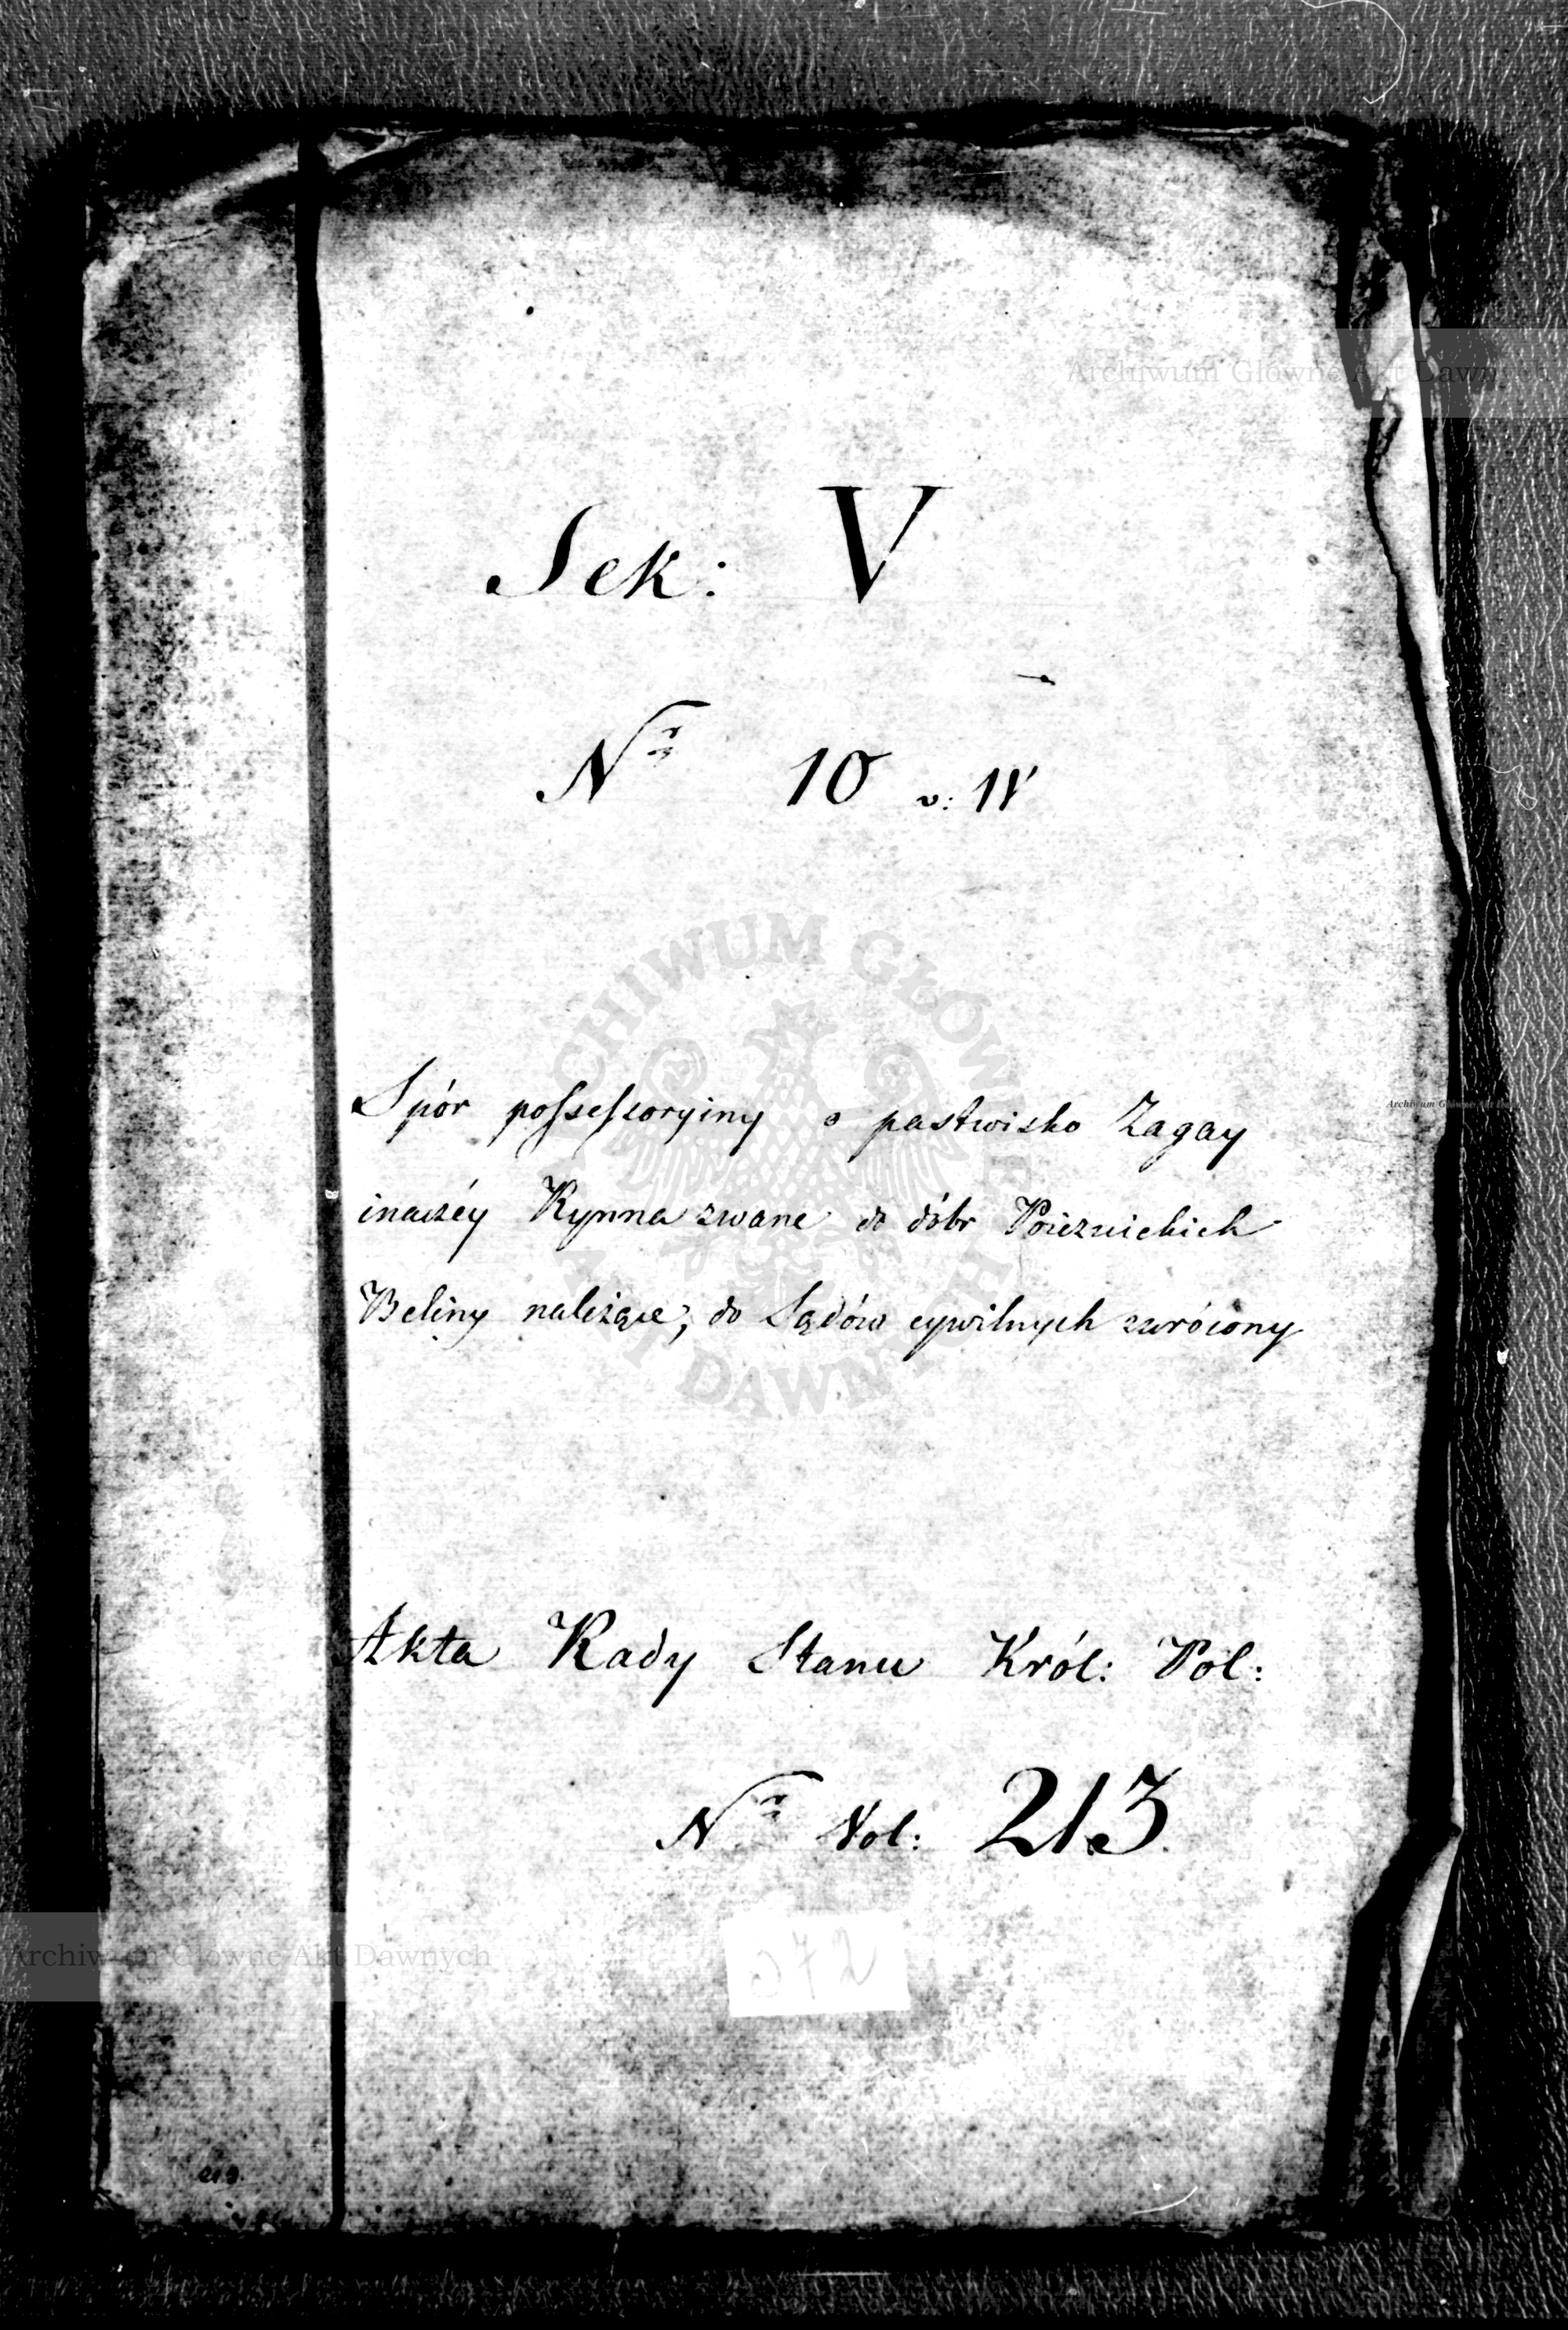 Archiwum Główne Akt Dawnych
Sek: V
Nr 10 v: IV
ARCHIWUM GŁÓWNE AKT DAWNYCH
Spór possessoryiny o pastwisko Zagay
Archiwum Główne Akt
inaczéy Rynna zwane do dóbr
Beliny należące, do Sądów cywilnych zwrócony
Akta Rady Stanu Król: Pol:
Nr Vol: 213.
Archiwum Główne Akt Dawnych
272